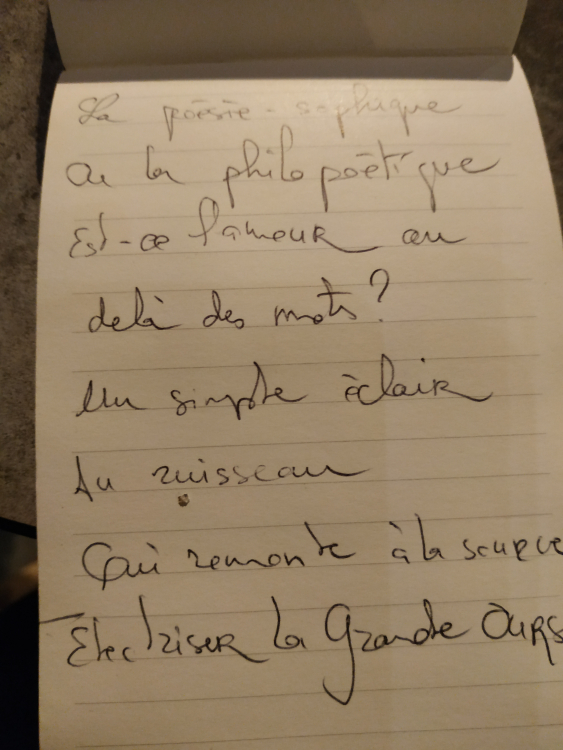 La poésie-sophique
Ou la philopoétique
Est-ce l'amour au
delà des mots?
Un simple éclair
Au ruisseau
Qui remonte à la source
Electriser la Grande Ours